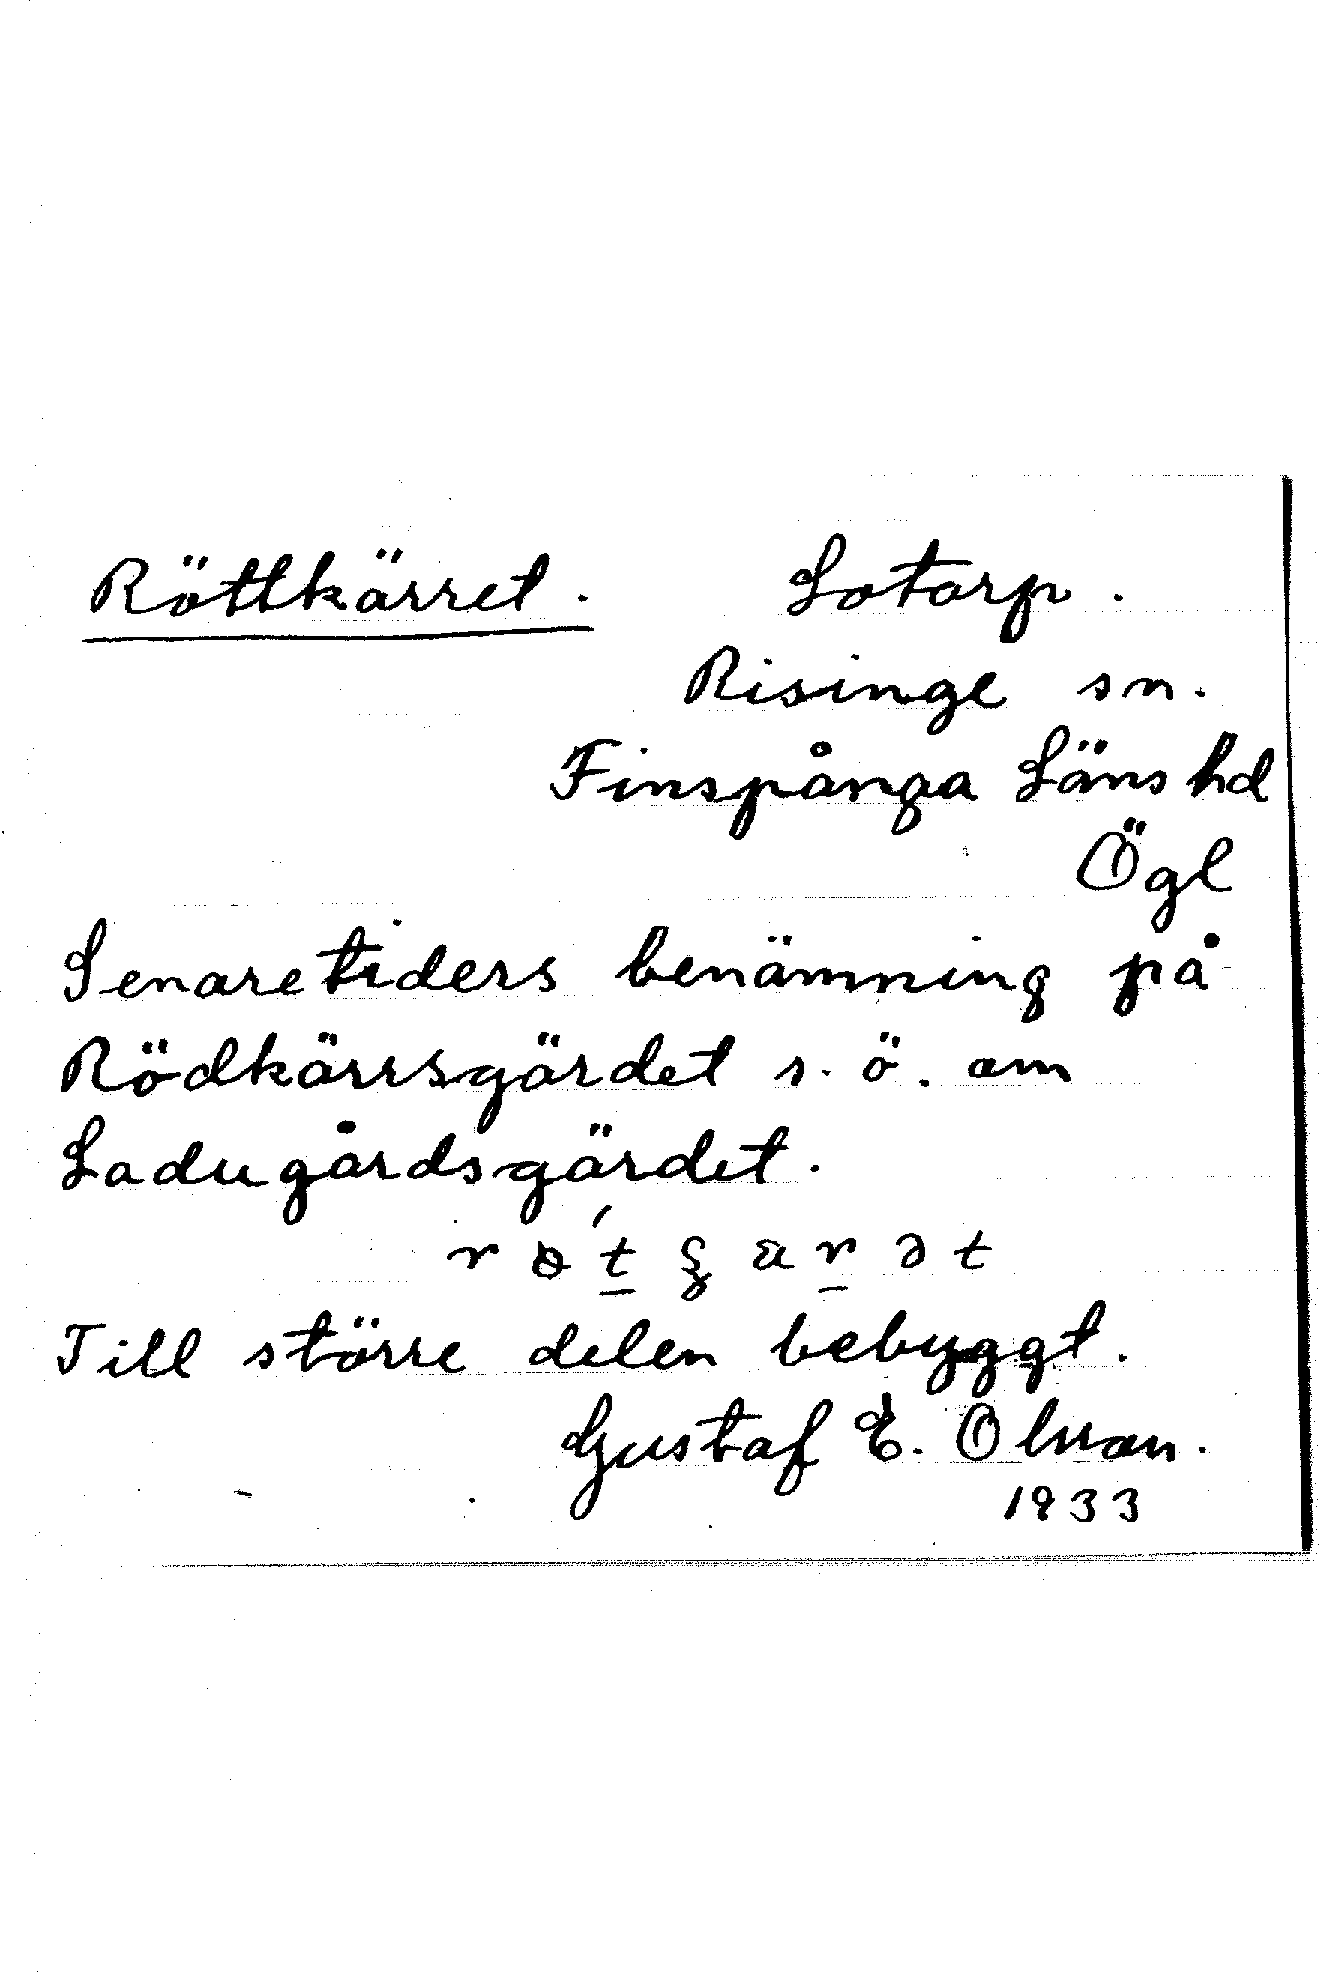 Röttkärret. Lotorp.
Risinge sn.
Finspånga Läns hd
Ögl
Senare tiders benämning på
Rödkärrsgärdet s. ö. om
Ladugårdsgärdet.
Till större delen bebyggt.
Gustaf E. Olsson.
1933